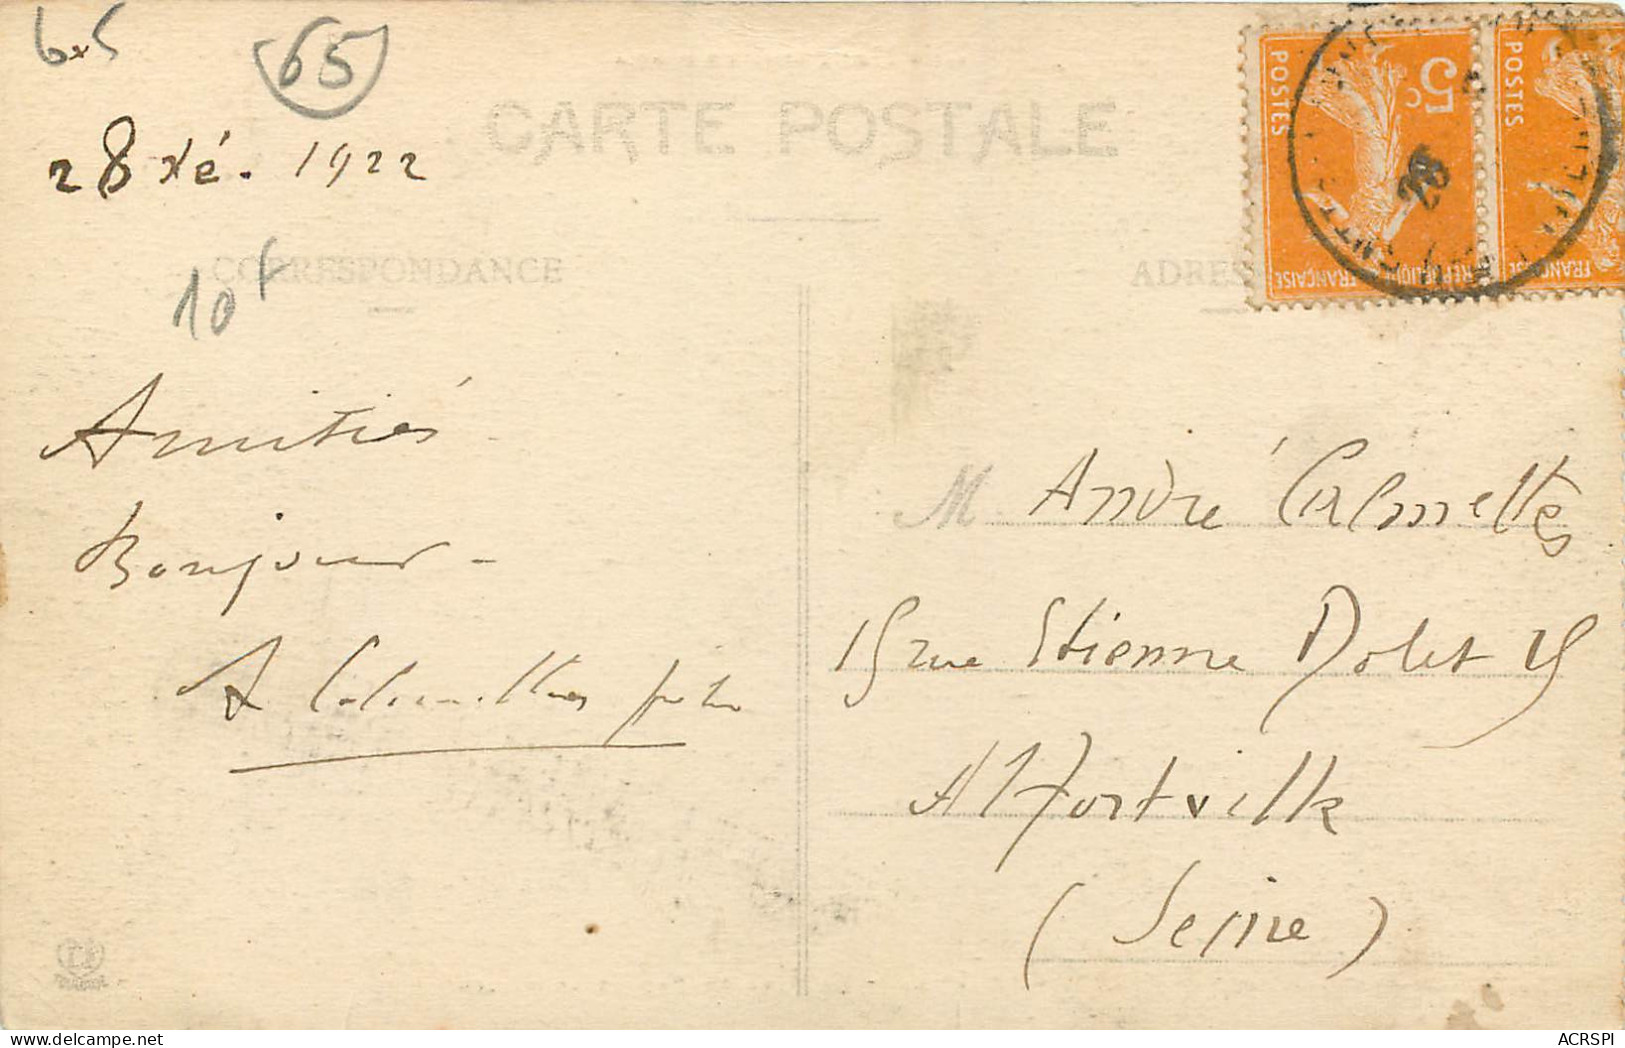 6x5
65
28 Xé. 1922
CARTE POSTALE
CORRESPONDANCE
10F
Amitiés
Bonjour -
A Calmettes
ADRES
5c
POSTES
RÉPUBLIQUE FRANÇAISE
POSTES
FRANÇAISE
28
M André Calmettes
15 rue Etienne Dolet 15
Alfortville
(Seine)
delcampe.net
ACRSPI